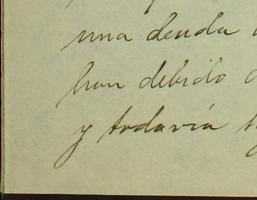 una deuda
han debido
y todavía